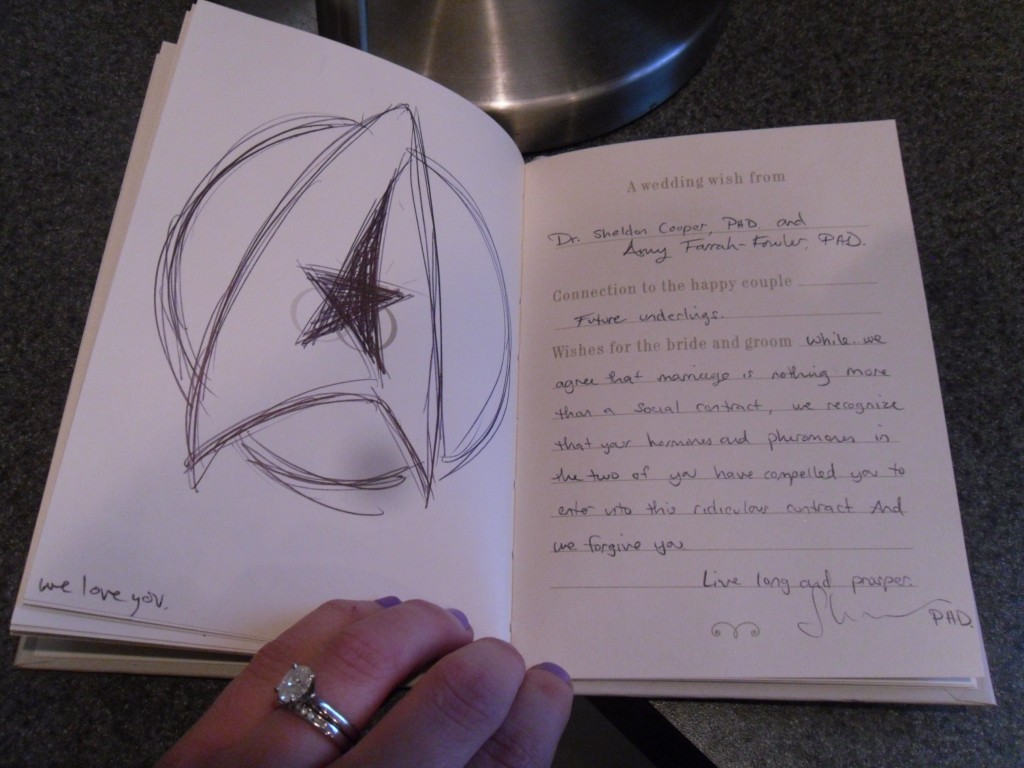 we love you.
A wedding wish from
Dr. Sheldon Cooper, PhD. and
Amy Farrah-Fowler, PhD.
Connection to the happy couple
Future underlings.
Wishes for the bride and groom While we
agree that marriage is nothing more
than a social contract, we recognize
that your hormones and pheromones in
the two of you have compelled you to
enter into this ridiculous contract And
we forgive you
Live long and prosper.
PhD.